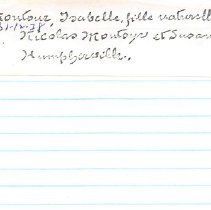 Montour, Isabelle, fille naturell
31-12-78
Nicolas Montour et Susan
Humpherville.